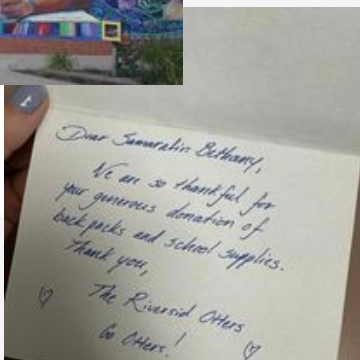 Dear Samaratin Bethany,
We are so thankful for
your generous donation of
back packs and school supplies.
Thank you,
The Riversid Otters
Go Otters!